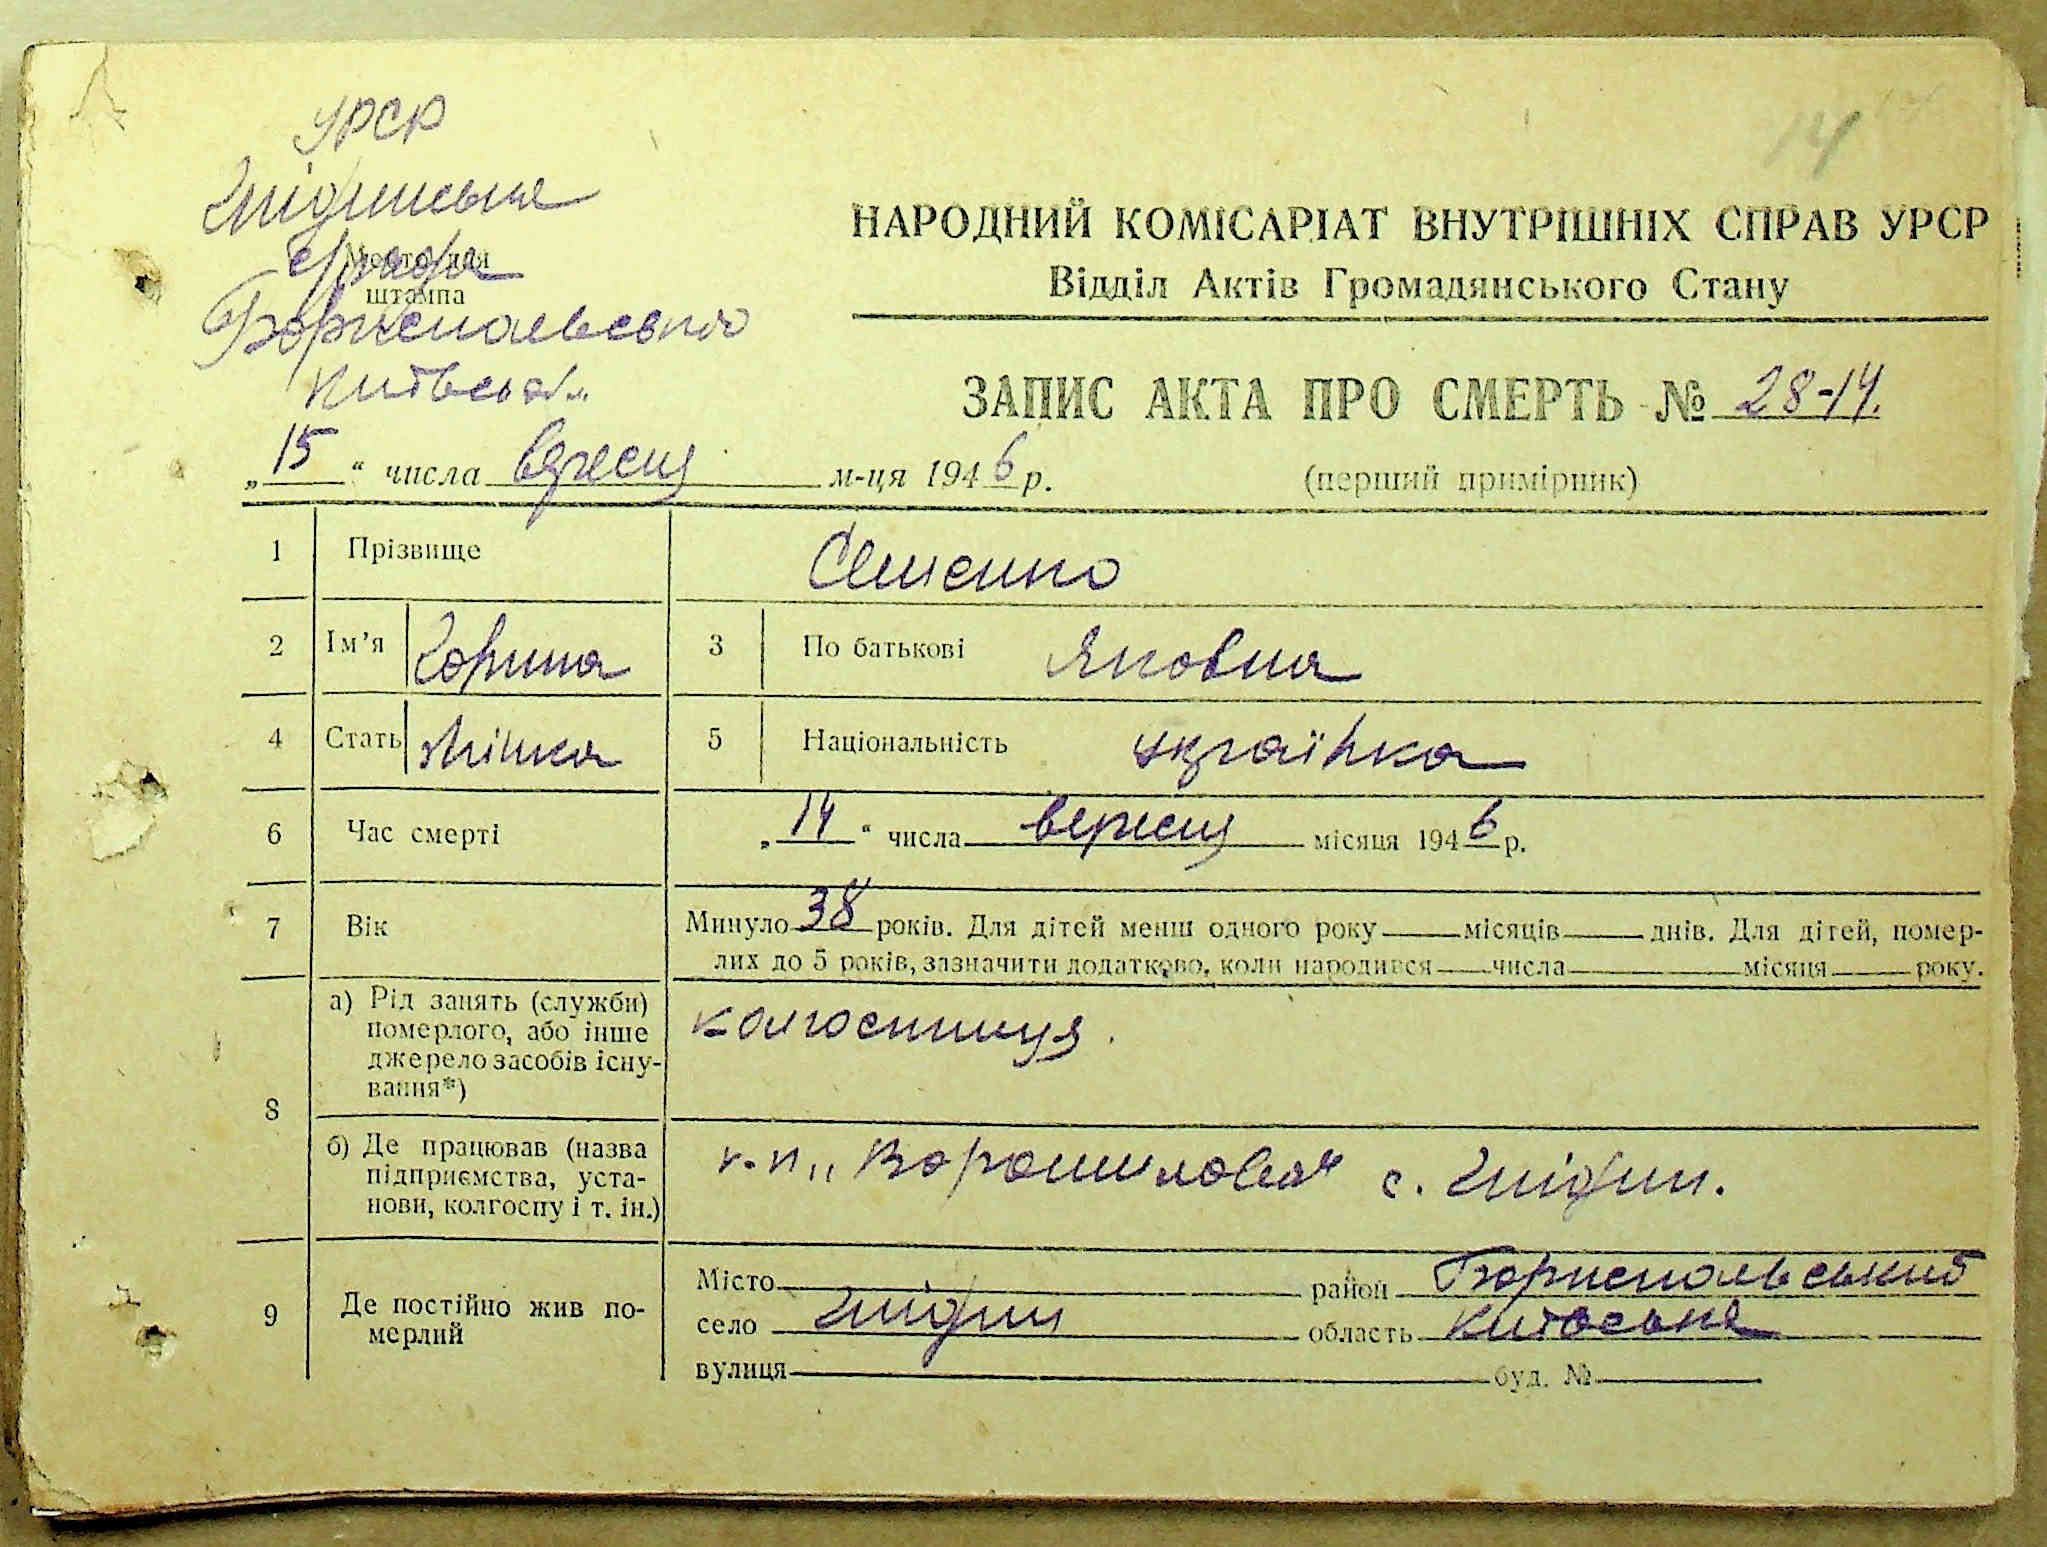 14
УРСР
Гнідинська
с/рада
Место для
штампа
Бориспольського
Київськ обл.
НАРОДНИЙ КОМІСАРІАТ ВНУТРІШНІХ СПРАВ УРСР
Відділ Актів Громадянського Стану
ЗАПИС АКТА ПРО СМЕРТЬ № 28-14.
„15“ числа вересня м-ця 1946 р.
(перший примірник)
1 Прізвище Семенко
2 Ім’я 3 По батькові Яковна
4 Стать жінка 5 Національність українка
6 Час смерті „14“ числа вересня місяця 1946 р.
7 Вік Минуло 38 років. Для дітей менш одного року місяців днів. Для дітей, помер-
лих до 5 років, зазначити додатково, коли народився числа місяця року.
8 а) Рід занять (служби)
померлого, або інше
джерело засобів існу-
вання*)
колгоспниця.
б) Де працював (назва
підприємства, уста-
нови, колгоспу і т. ін.)
к-п „Ворошилова“ с. Гнідин.
9 Де постійно жив по-
мерлий
Місто район Бориспольський
село Гнідин область Київська
вулиця буд. №